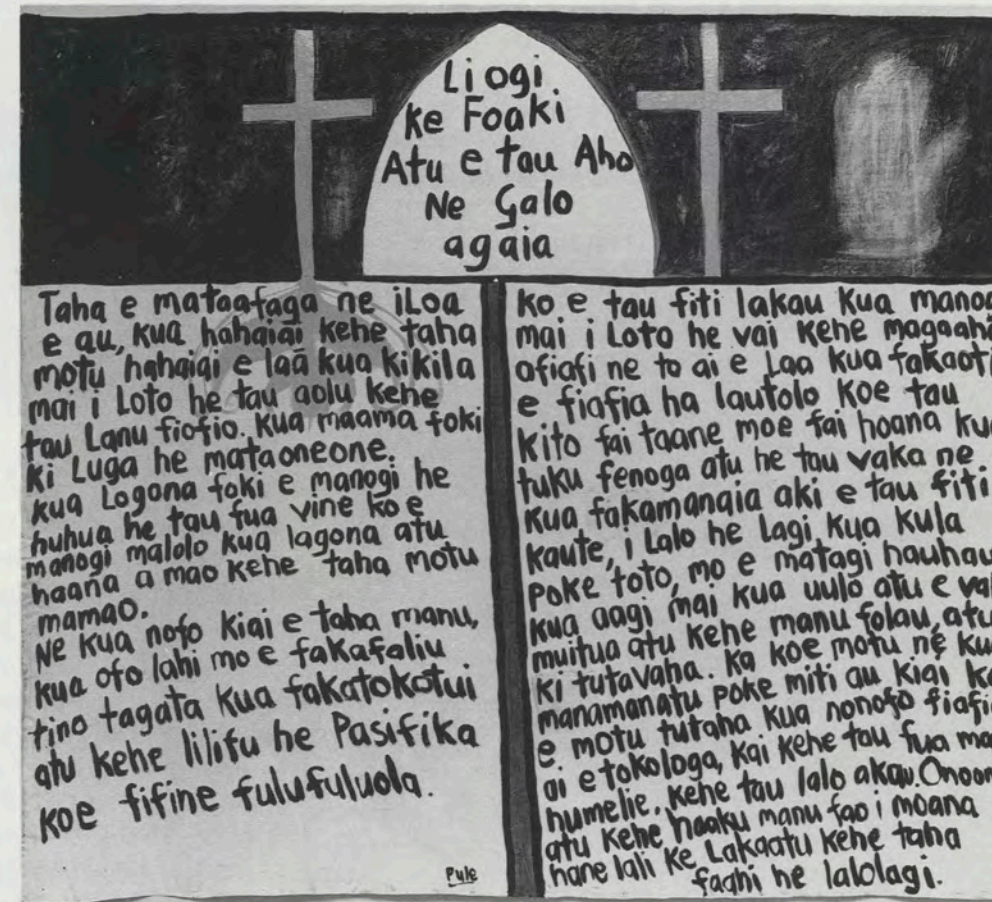 Liogi
ke Foaki
Atu e tau Aho
Ne Galo
agaia
Taha e mataafaga ne iloa
e au, kua hahaiai kehe taha
motu hahaiai e laā kua kikila
mai i Loto he tau aolu kehe
tau Lanu fiofio. Kua maama foki
ki Luga he mataoneone.
kua Logona foki e manogi he
huhua he tau fua vine ko e
manogi malolo kua lagona atu
haana a mao kehe taha motu
mamao.
Ne kua nofo kiai e taha manu,
kua ofo lahi mo e fakafaliu
tino tagata kua fakatokotui
atu kehe lilifu he Pasifika
koe fifine fulufuluola.
Pule
ko e tau fiti lakau kua manog
mai i Loto he vai kehe magaaho
afiafi ne to ai e Laa kua fakaoti
e fiafia ha lautolo koe tau
kito fai taane moe fai hoana kua
tuku fenoga atu he tau vaka ne
kua fakamanaia aki e tau fiti
kaute, i Lalo he Lagi kua kula
poke toto, mo e matagi hauhau
kua aagi mai kua uulo atu e
muitua atu kehe manu folau, atu
ki tutavaha. Ka koe motu ne kua
manamanatu poke miti au kiai
e motu tutaha kua nonofo fiafia
ai e tokologa, kai kehe tau fua
humelie. kehe tau lalo akau.
atu kehe haaku manu fao i moana
hane lali ke Lakaatu kehe taha
faahi he lalolagi.